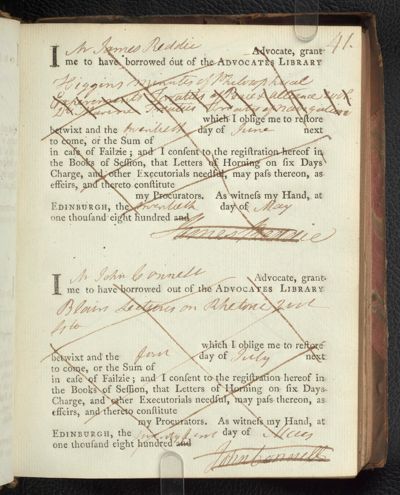 41.
I Mr James Reddie Advocate, grant
me to have borrowed out of the ADVOCATES LIBRARY
Higgins minutes of Philosophical
Experiments
which I oblige me to reſtore
betwixt and the twentieth day of June next
to come, or the Sum of
in caſe of Failzie; and I conſent to the regiſtration hereof in
the Books of Seſſion, that Letters of Horning on ſix Days
Charge, and other Executorials needful, may paſs thereon, as
effeirs, and thereto conſtitute
my Procurators. As witneſs my Hand, at
EDINBURGH, the twentieth day of May
one thouſand eight hundred and
James Reddie
I Mr John Connell Advocate, grant
me to have borrowed out of the ADVOCATES LIBRARY
Blairs Lectures on Rhetoric
which I oblige me to reſtore
betwixt and the first day of July next
to come, or the Sum of
in caſe of Failzie; and I conſent to the regiſtration hereof in
the Books of Seſſion, that Letters of Horning on ſix Days
Charge, and other Executorials needful, may paſs thereon, as
effeirs, and thereto conſtitute
my Procurators. As witneſs my Hand, at
EDINBURGH, the day of May
one thouſand eight hundred and
John Connell